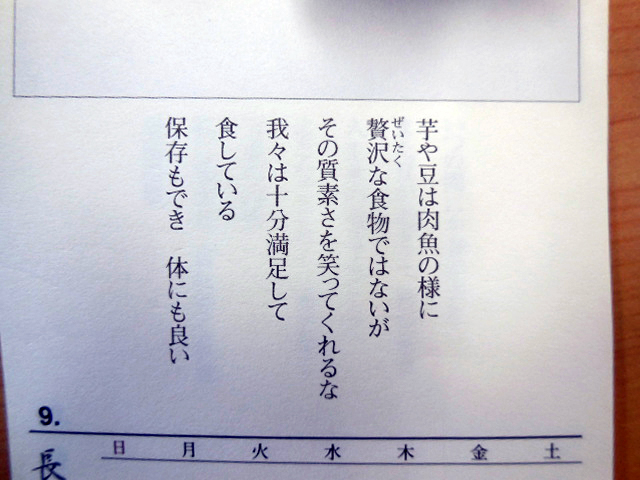 芋や豆は肉魚の様に
贅沢な食物ではないが
ぜいたく
その質素さを笑ってくれるな
我々は十分満足して
食している
保存もでき　体にも良い
9.
日 月 火 水 木 金 土
長